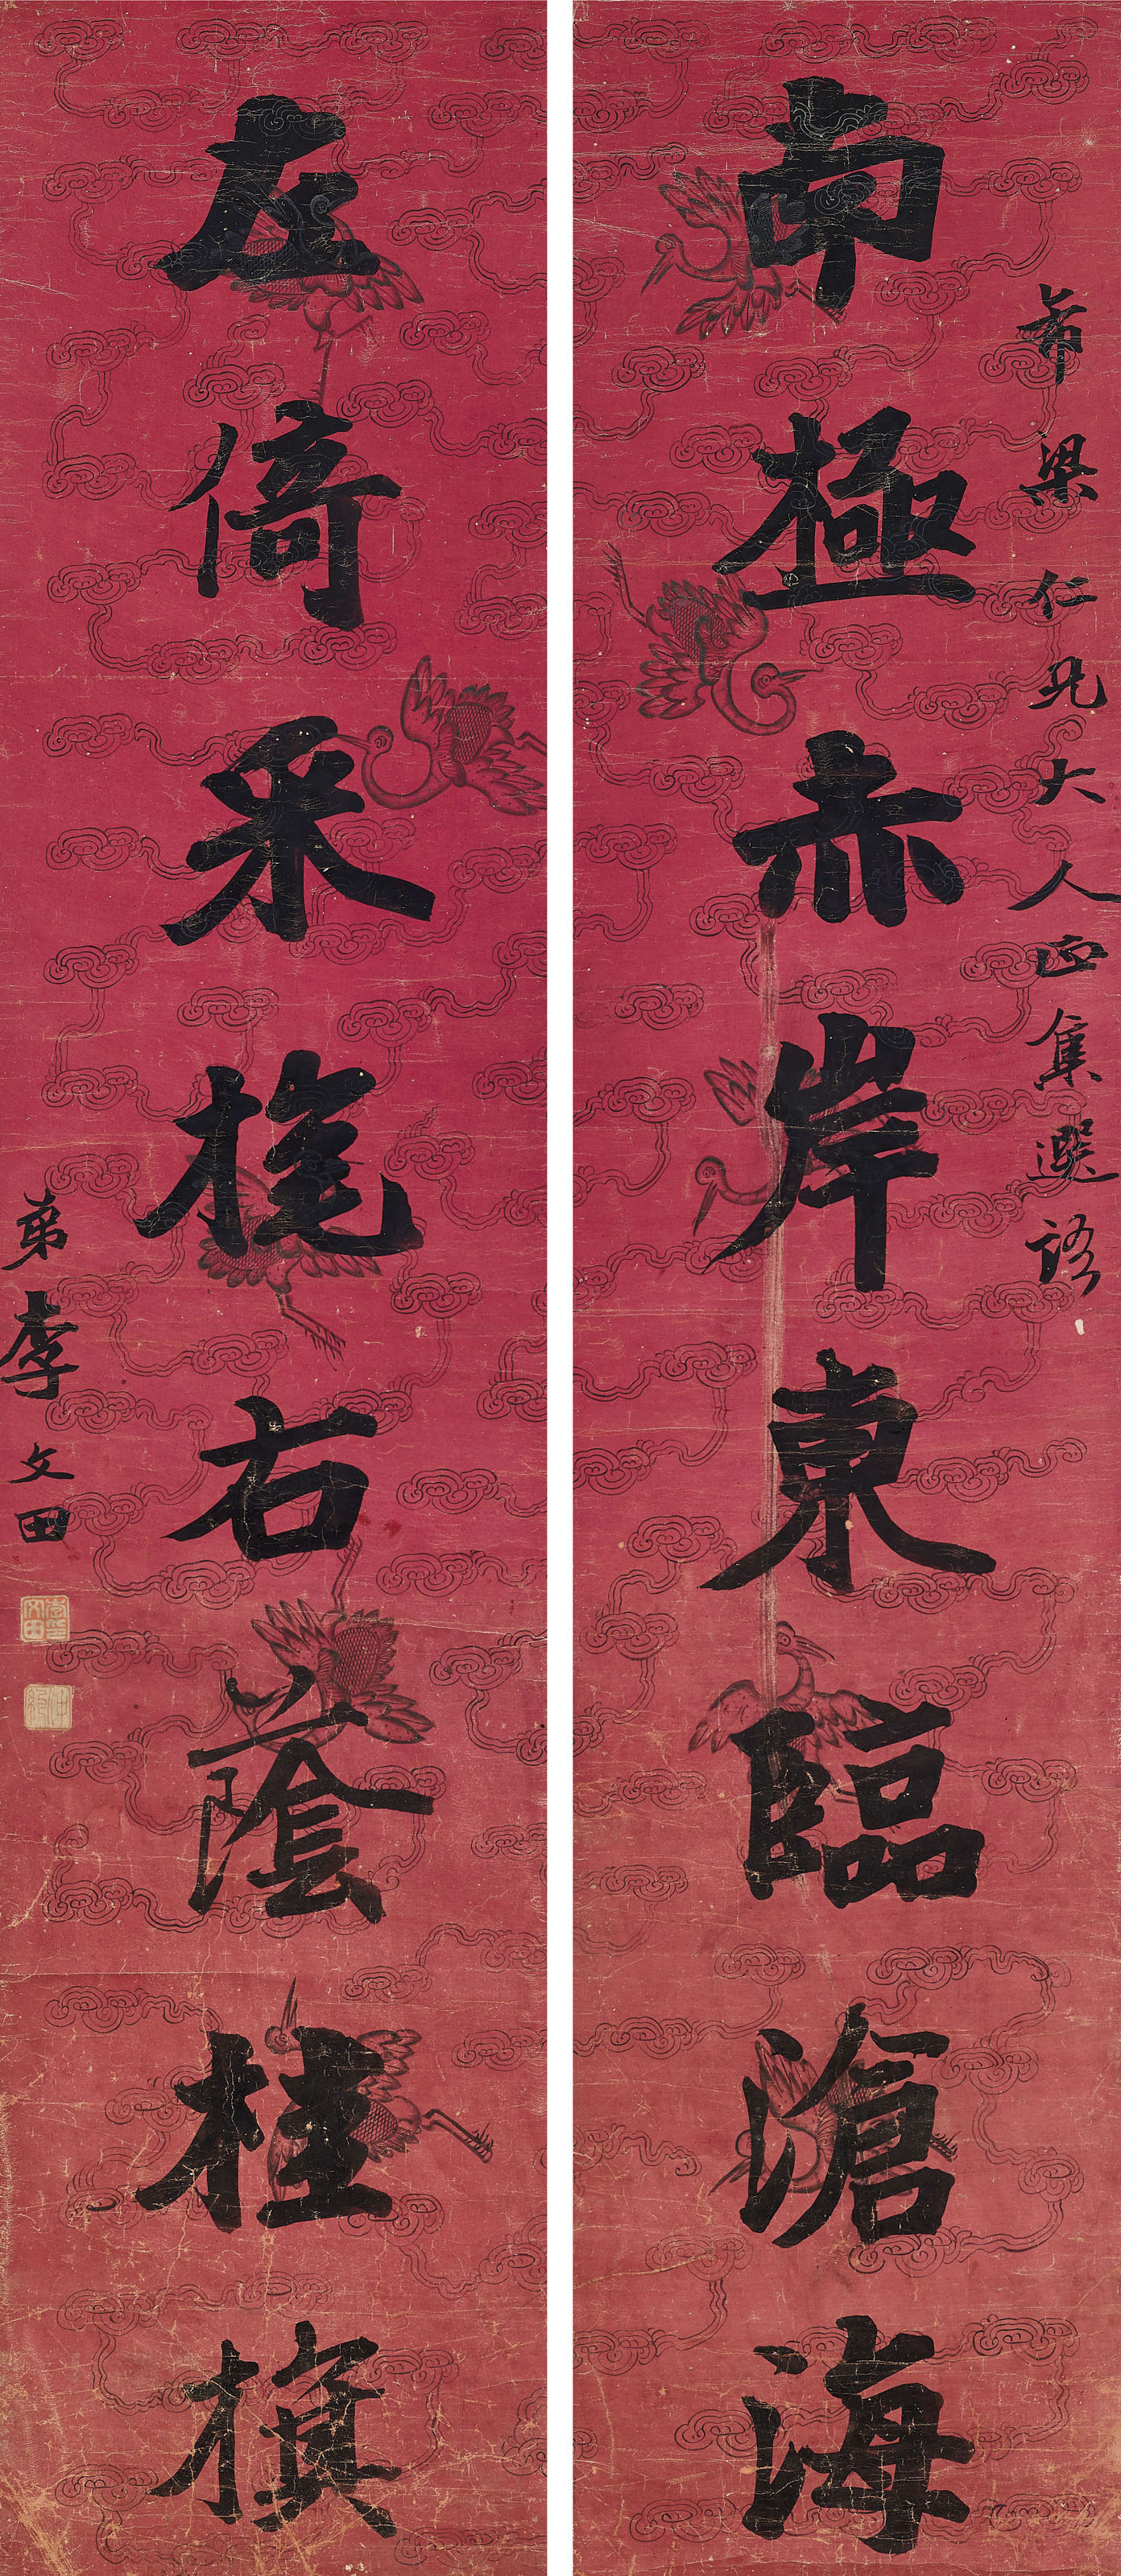 希梁仁兄大人正集選語
南極赤岸東臨滄海
左倚采旄右蔭桂旗
弟李文田
李印文田
仲約